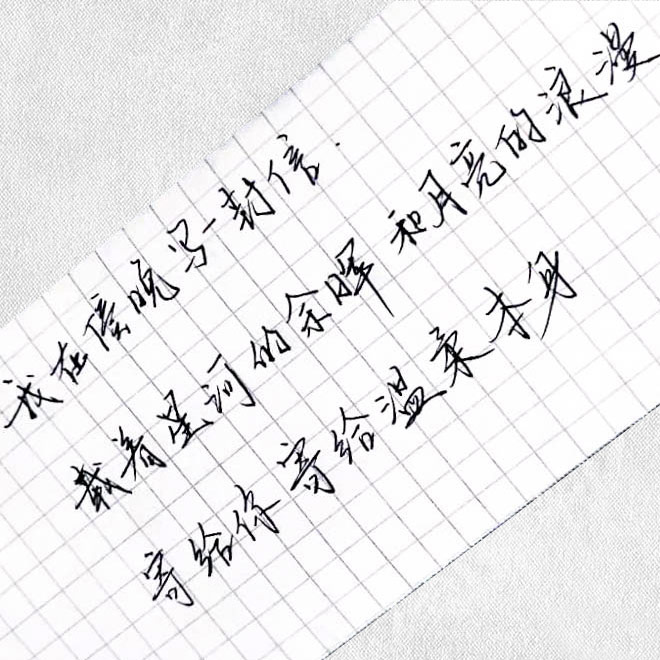 我在傍晚写一封信.
载着星河的余晖 和月亮的浪漫
寄给你 寄给温柔本身